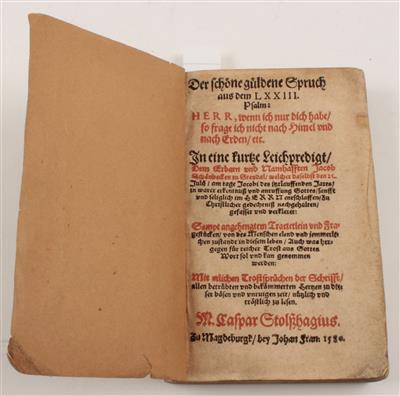 Der schöne güldene Spruch
aus dem LXXIII.
Psalm:
HERR, wenn ich nur dich habe/
so frage ich nicht nach Himel vnd
nach Erden/ etc.
In eine kurtze Leichpredigt/
Dem Erbarn vnd Namhafften Jacob
zu Stendal/ welcher daselbst den 25.
Julij/ am tage Jacobi des itzlauffenden Jares/
in warer erkentnuß vnd anruffung Gottes/ senfft
vnd seliglich im HERRN entschlaffen/ zu
Christlicher gedechtnis nachgehalten/
gefasset vnd verkleret:
Sampt angehengtem Tractetlein vnd Fra-
gestücken/ von des Menschen elend vnd jemmerli-
chen zustande in diesem leben/ Auch was her-
gegen für reicher Trost aus Gottes
Wort sol vnd kan genommen
werden:
Mit etlichen Trostsprüchen der Schrifft/
allen betrübten vnd bekümmerten Hertzen zu die-
ser bösen vnd vnrugen zeit/ nützlich vnd
tröstlich zu lesen.
M. Caspar Stolßhagius.
Zu Magdeburgk/ bey Johan Fran: 1580.